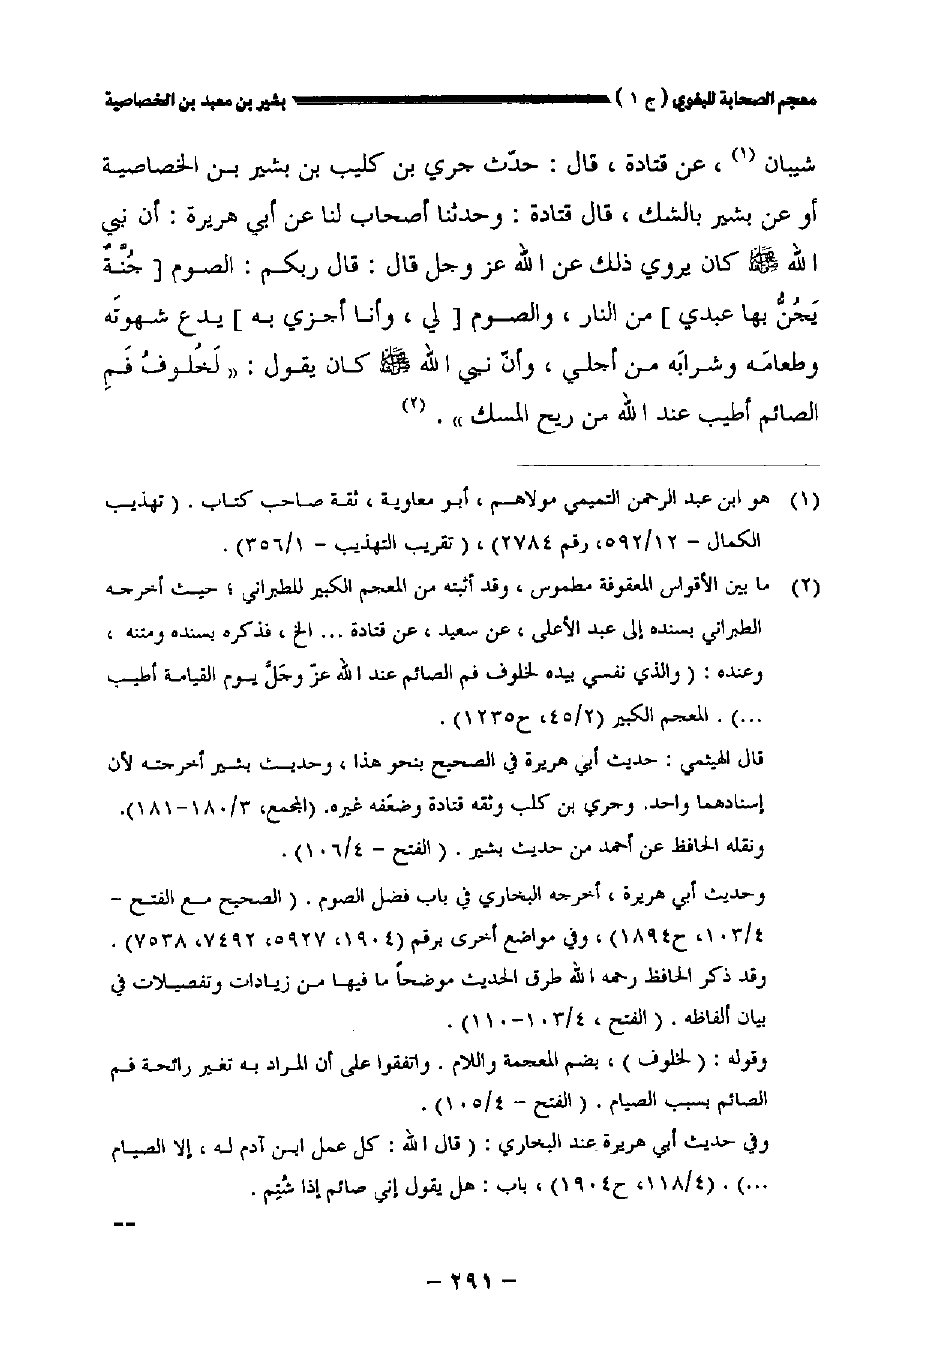 معجم الصحابة للبغوي ( ج ١ ) بشير بن معبد بن الخصاصية
شيبان (١) ، عن قتادة ، قال : حدّث جري بن كليب بن بشير بـن الخصاصيـة
أو عن بشير بالشك ، قال قتادة : وحدثنا أصحاب لنا عن أبي هريرة : أن نبي
الله ﷺ كان يروي ذلك عن الله عز وجل قال : قال ربكـم : الصـوم [ جُنَّـةٌ
يَجُنُّ بها عبدي ] من النار ، والصـوم [ لي ، وأنـا أجـزي بـه ] يـدع شـهوتَه
وطعامَـه وشـرابَه مـن أجلـي ، وأنّ نـبي الله ﷺ كـان يقـول : « لَخُلـوفُ فَـمِ
الصائم أطيب عند الله من ريح المسك » . (٢)
(١) هو ابن عبد الرحمن التميمي مولاهـم ، أبـو معاويـة ، ثقـة صـاحب كتـاب . ( تهذيـب
الكمال – ٥٩٢/١٢، رقم ٢٧٨٤) ، ( تقريب التهذيب – ٣٥٦/١) .
(٢) ما بين الأقواس المعقوفة مطموس ، وقد أثبته من المعجم الكبير للطبراني ؛ حيـث أخرجـه
الطبراني بسنده إلى عبد الأعلى ، عن سعيد ، عن قتادة ... الخ ، فذكره بسنده ومتنه ،
وعنده : ( والذي نفسي بيده لخلوف فم الصائم عند الله عزّ وجَلَّ يـوم القيامـة أطيـب
...) . المعجم الكبير (٤٥/٢، ح١٢٣٥) .
قال الهيثمي : حديث أبي هريرة في الصحيح بنحو هذا ، وحديـث بشـير أخرجتـه لأن
إسنادهما واحد. وجري بن كلب وثقه قتادة وضعّفه غيره. (المجمع، ١٨٠/٣-١٨١).
ونقله الحافظ عن أحمد من حديث بشير . ( الفتح – ١٠٦/٤) .
وحديث أبي هريرة ، أخرجه البخاري في باب فضل الصوم . ( الصحيح مـع الفتـح –
١٠٣/٤، ح١٨٩٤) ، وفي مواضع أخرى برقم (١٩٠٤، ٥٩٢٧، ٧٤٩٢، ٧٥٣٨) .
وقد ذكر الحافظ رحمه الله طرق الحديث موضحاً ما فيهـا مـن زيـادات وتفصيـلات في
بيان ألفاظه . ( الفتح ، ١٠٣/٤-١١٠) .
وقوله : ( لخلوف ) ، بضم المعجمة واللام . واتفقوا على أن المـراد بـه تغير رائحـة فـم
الصائم بسبب الصيام . ( الفتح – ١٠٥/٤) .
وفي حديث أبي هريرة عند البخاري : ( قال الله : كل عمل ابـن آدم لـه ، إلا الصيـام
...) . (١١٨/٤، ح١٩٠٤) ، باب : هل يقول إني صائم إذا شُتِم .
--
– ٢٩١ –